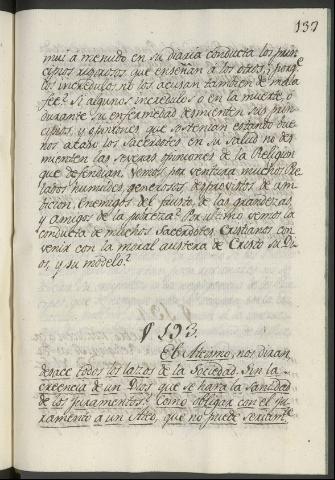 137
mui a menudo en su diaria conducta los prin-
cipios rigorosos que enseñan à los otros; porq.e
los incredulos no los acusan tambien de mala
feè? Si algunos incredulos ò en la muerte, ò
durante su enfermedad desmienten sus prin-
cipios, y opiniones que sostenian estando bue-
nos acaso los Sacerdotes en su salud no des-
mienten las severas opiniones de la Religion
que defendian. Vemos por ventura muchos Pre-
lados humildes, generosos, desprovistos de am-
bicion, enemigos del fausto, de las grandezas,
y amigos de la pobreza? Por ultimo vemos la
conducta de muchos Sacerdotes Cristianos con-
venir con la moral austera de Cristo su Di-
os, y su modelo?
§ 193.
El Ateismo, nos diran
rompe todos los lazos de la Sociedad. Sin la
creencia de un Dios que se hara la Santidad
de los juramentos? Como obligar con el ju-
ramento a un Ateo, que no puede seriam.te